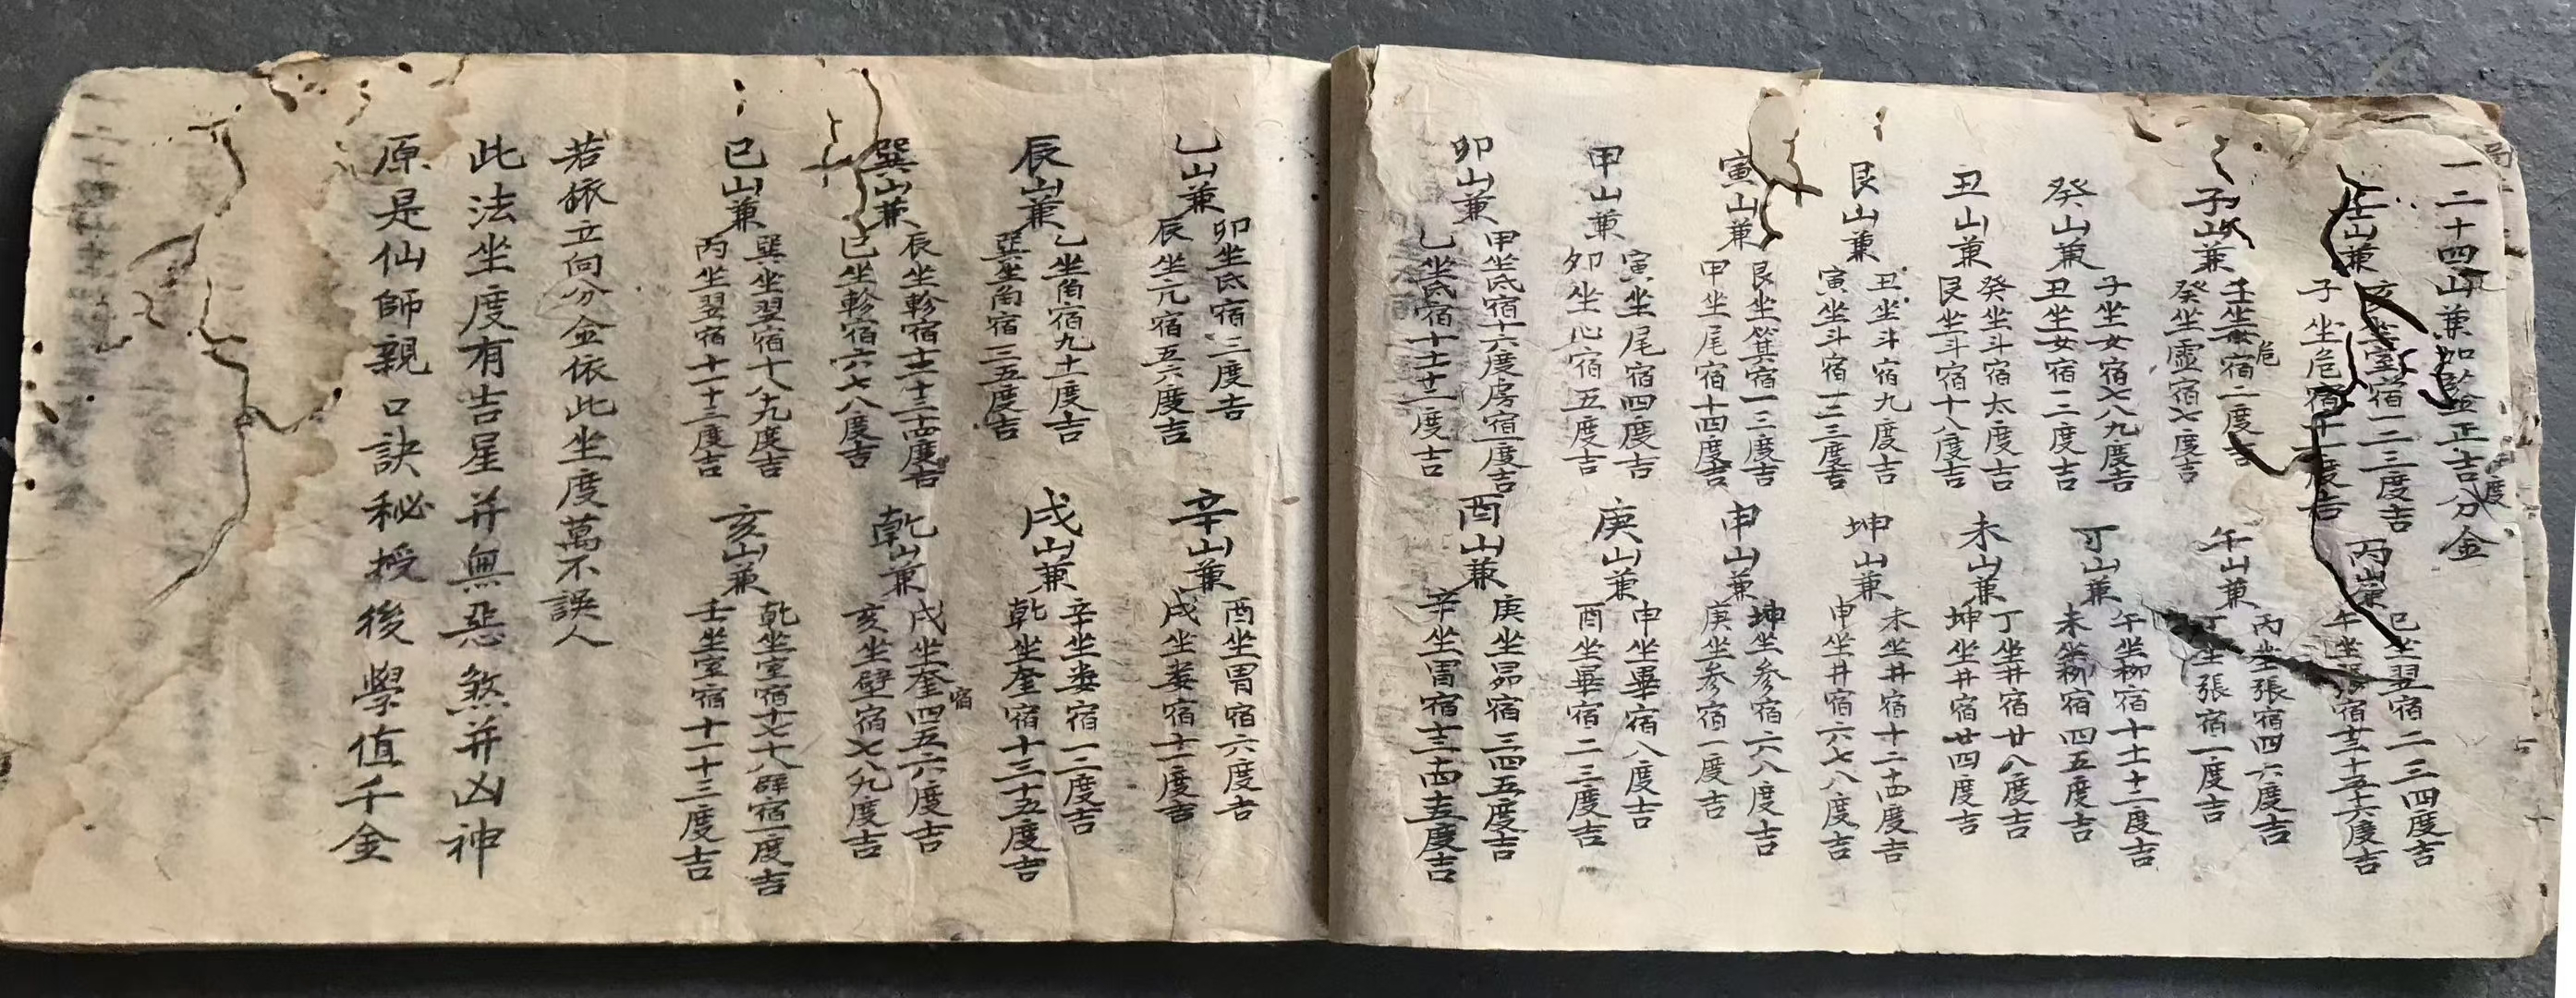 一二十四山兼加監正吉分金
壬山兼
亥坐室宿一二三度吉
子坐危宿十一度吉
丙山兼
巳坐翌宿二三四度吉
午坐張宿十五十六度吉
子山兼
壬坐危宿二度吉
癸坐虛宿七度吉
午山兼
丙坐張宿四六度吉
丁坐張宿一度吉
癸山兼
子坐女宿七八九度吉
丑坐女宿二三度吉
丁山兼
午坐柳宿十十一十二度吉
未坐柳宿四五度吉
丑山兼
癸坐斗宿太度吉
艮坐斗宿十八度吉
未山兼
丁坐井宿廿八度吉
坤坐井宿廿四度吉
艮山兼
丑坐斗宿九度吉
寅坐斗宿一二三度吉
坤山兼
未坐井宿十二十四度吉
申坐井宿六七八度吉
寅山兼
艮坐箕宿一三度吉
甲坐尾宿十四度吉
申山兼
坤坐参宿六八度吉
庚坐参宿一度吉
甲山兼
寅坐尾宿四度吉
卯坐心宿五度吉
庚山兼
申坐畢宿八度吉
酉坐畢宿二三度吉
卯山兼
甲坐氐宿十六度房宿一度吉
乙坐氐宿十十一度吉
酉山兼
庚坐昴宿三四五度吉
辛坐胃宿十三十四十五度吉
乙山兼
卯坐氐宿二度吉
辰坐亢宿五六度吉
辛山兼
酉坐胃宿六度吉
戌坐婁宿十一度吉
辰山兼
乙坐角宿九十一度吉
巽坐角宿三五度吉
戌山兼
辛坐婁宿一二度吉
乾坐奎宿十三十五度吉
巽山兼
辰坐軫宿十二十三十四度吉
巳坐軫宿六七八度吉
乾山兼
戌坐奎宿四五六度吉
亥坐壁宿七八九度吉
巳山兼
巽坐翌宿十八十九度吉
丙坐翌宿十一十三度吉
亥山兼
乾坐室宿十七十八辟宿一度吉
壬坐室宿十一十三度吉
若依立向分金依此坐度萬不誤人
此法坐度有吉星并無惡煞并凶神
原是仙師親口訣秘授後學值千金